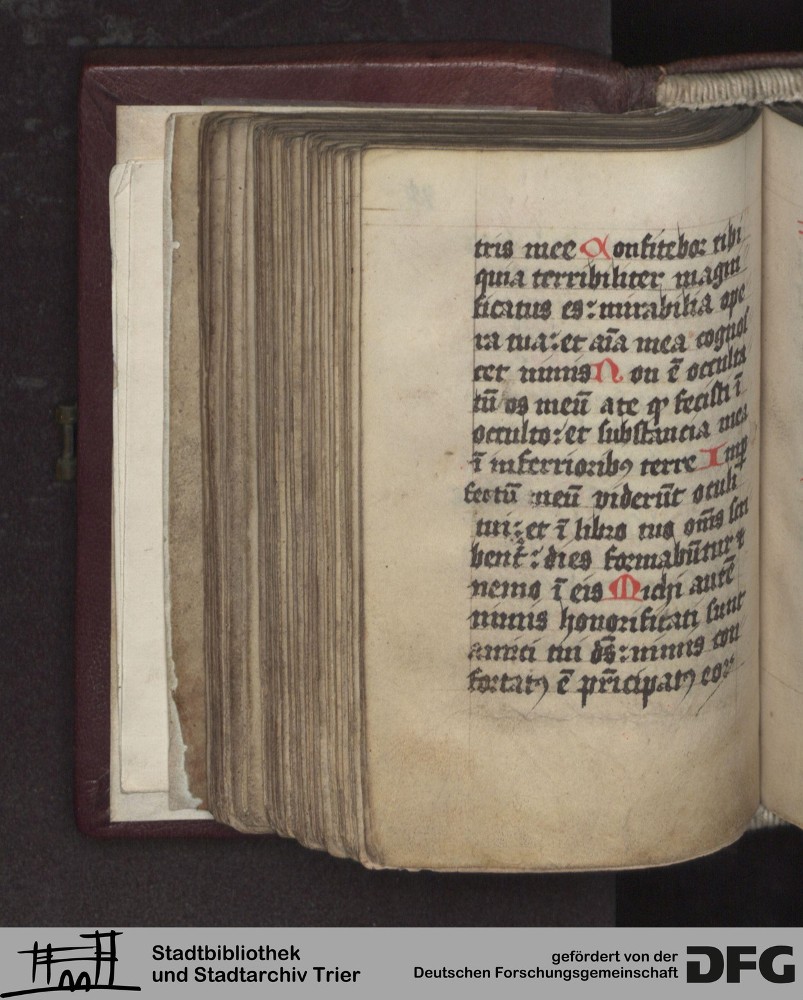 tris mee Confitebor tibi
quia terribiliter magni
ficatus es: mirabilia ope
ra tua: et aīa mea cognos
cet nimis Non ē occulta
tū os meū a te qͥ fecisti ī
occulto: et substancia mea
ī inferrioribꝯ terre Imp
fectū meū viderūt oculi
tui: et ī libro tuo om̄s scri
bent᷑: dies formabūtur ⁊
nemo ī eis Michi autē
nimis honorificati sunt
amici tui ds̄: nimis con
fortatꝯ ē pr̄icipatꝯ eoꝝ
Stadtbibliothek
und Stadtarchiv Trier
gefördert von der
Deutschen Forschungsgemeinschaft
DFG